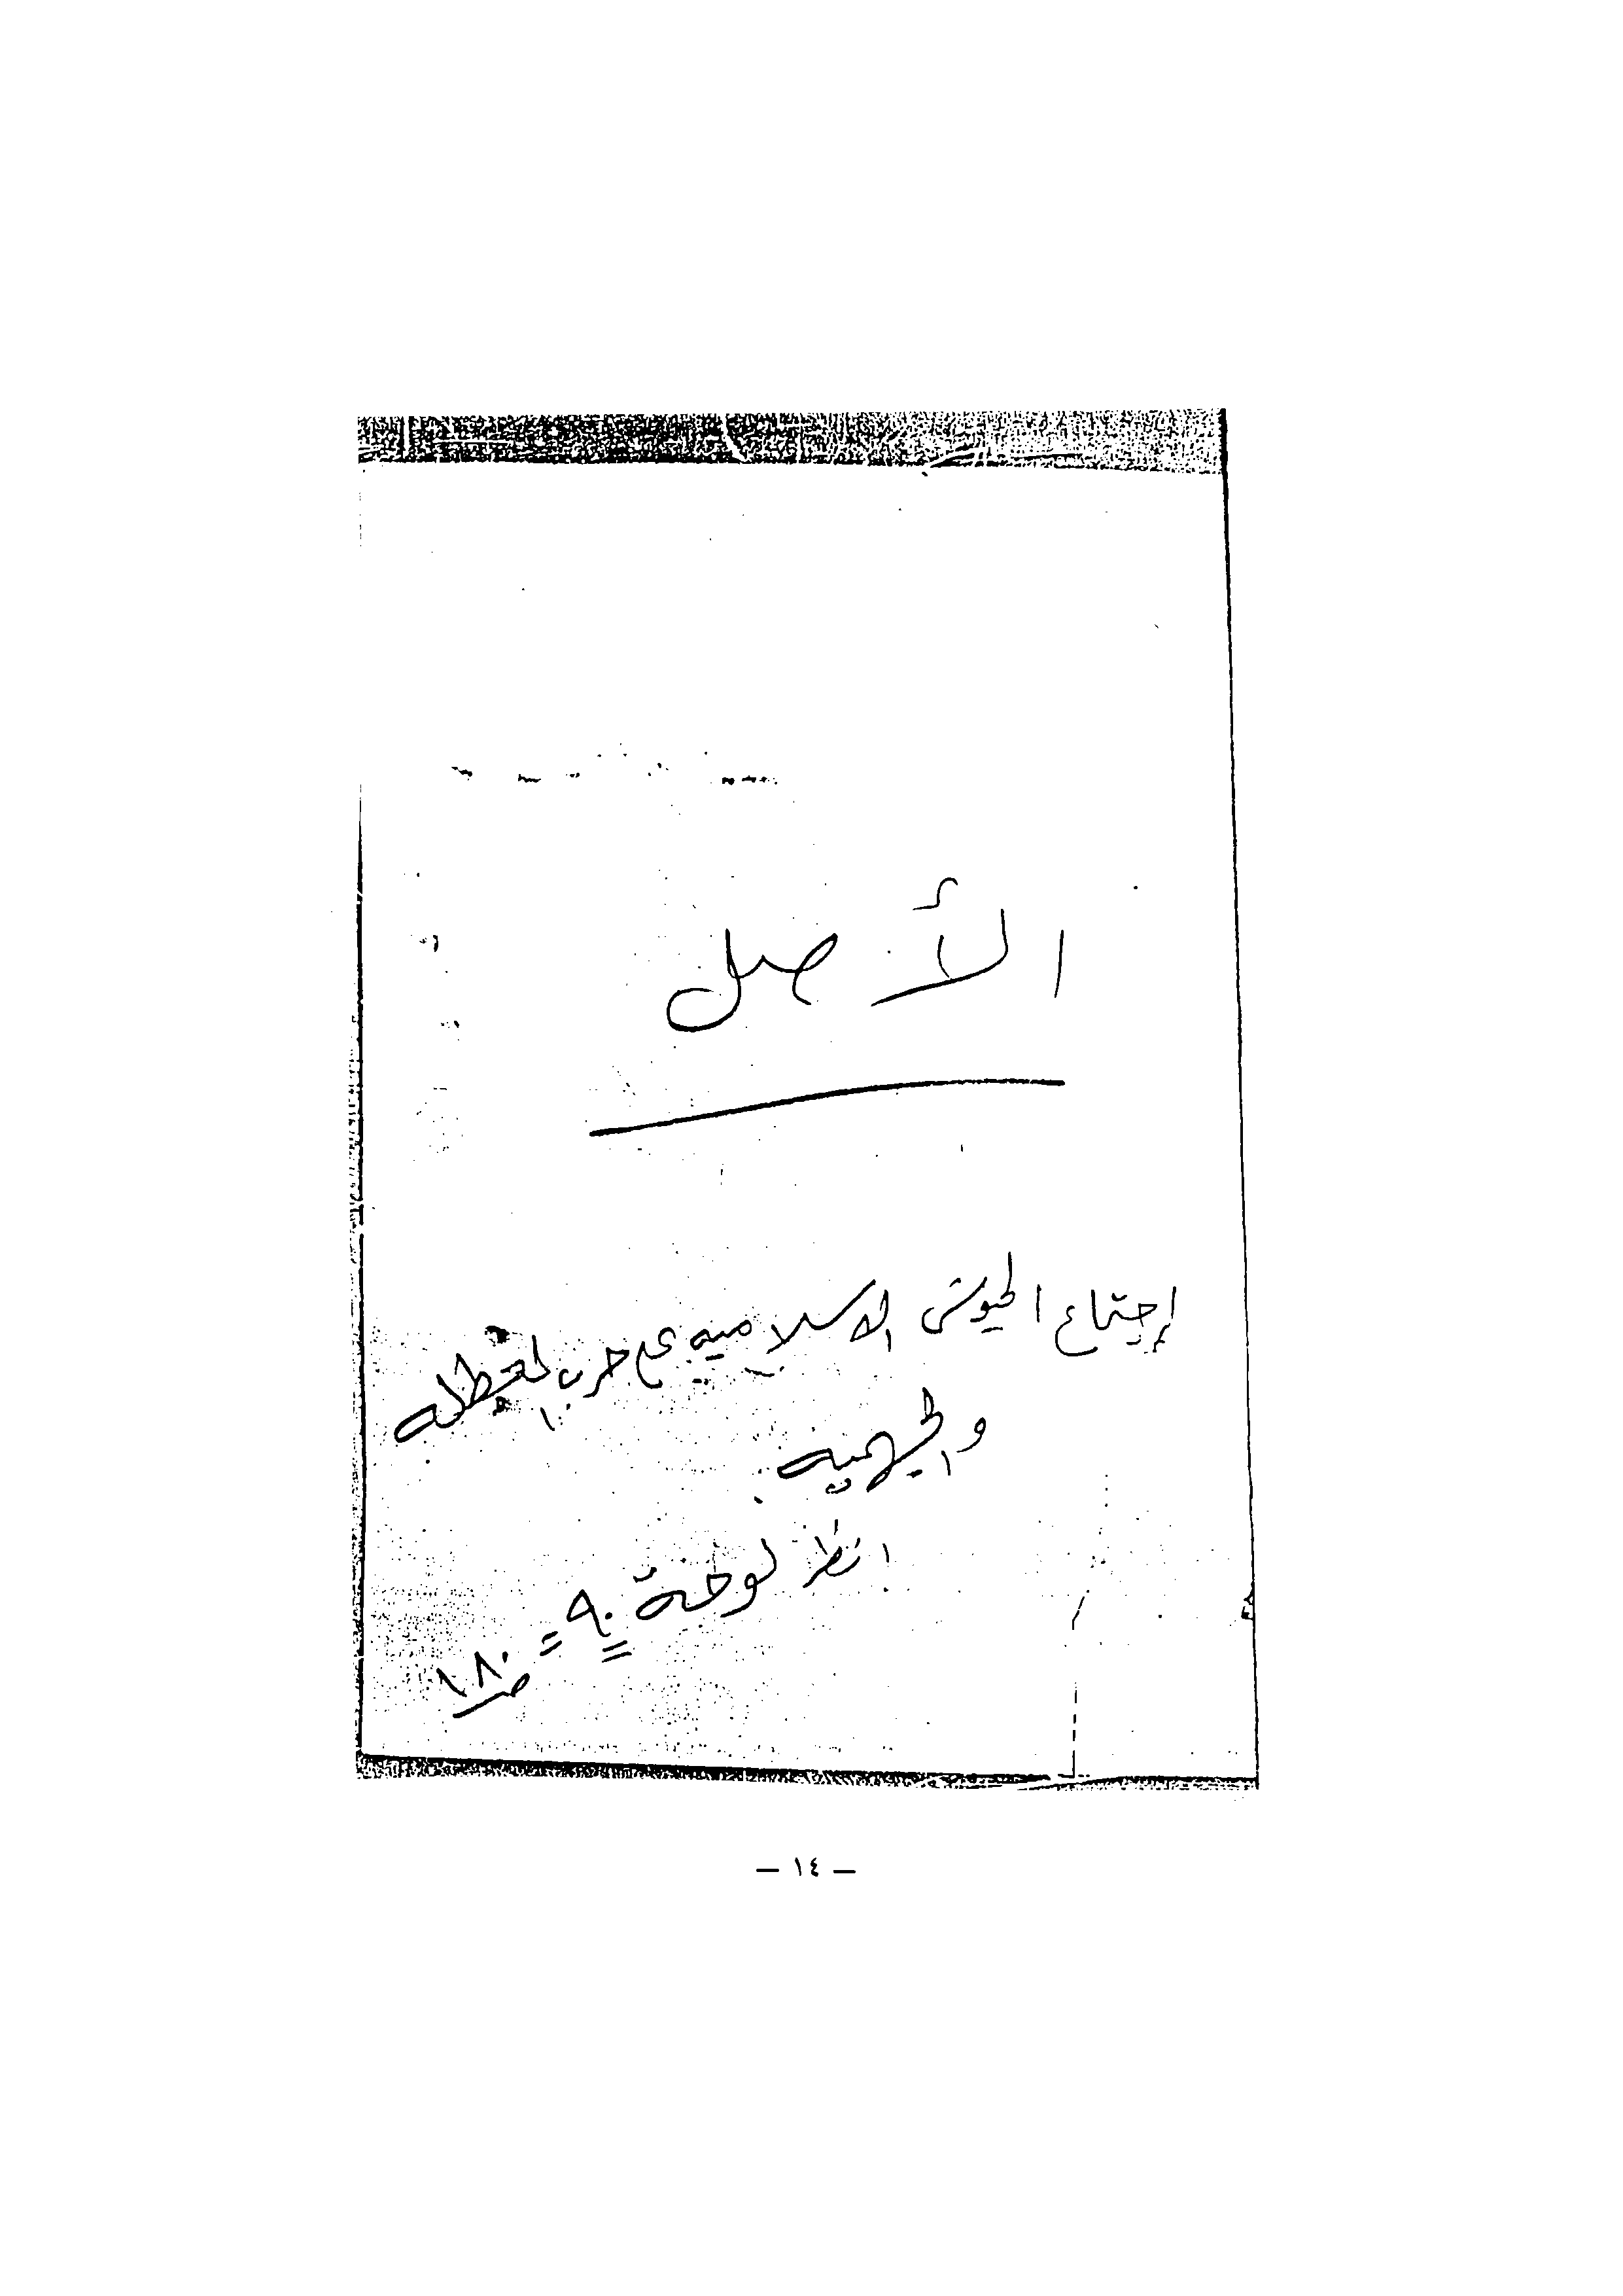 الأصل
إجتماع الجيوش الاسلاميه على حرب المعطله
والجهميه
انظر لوحة ٩٠ =
ص ١٨٠
— ١٤ —